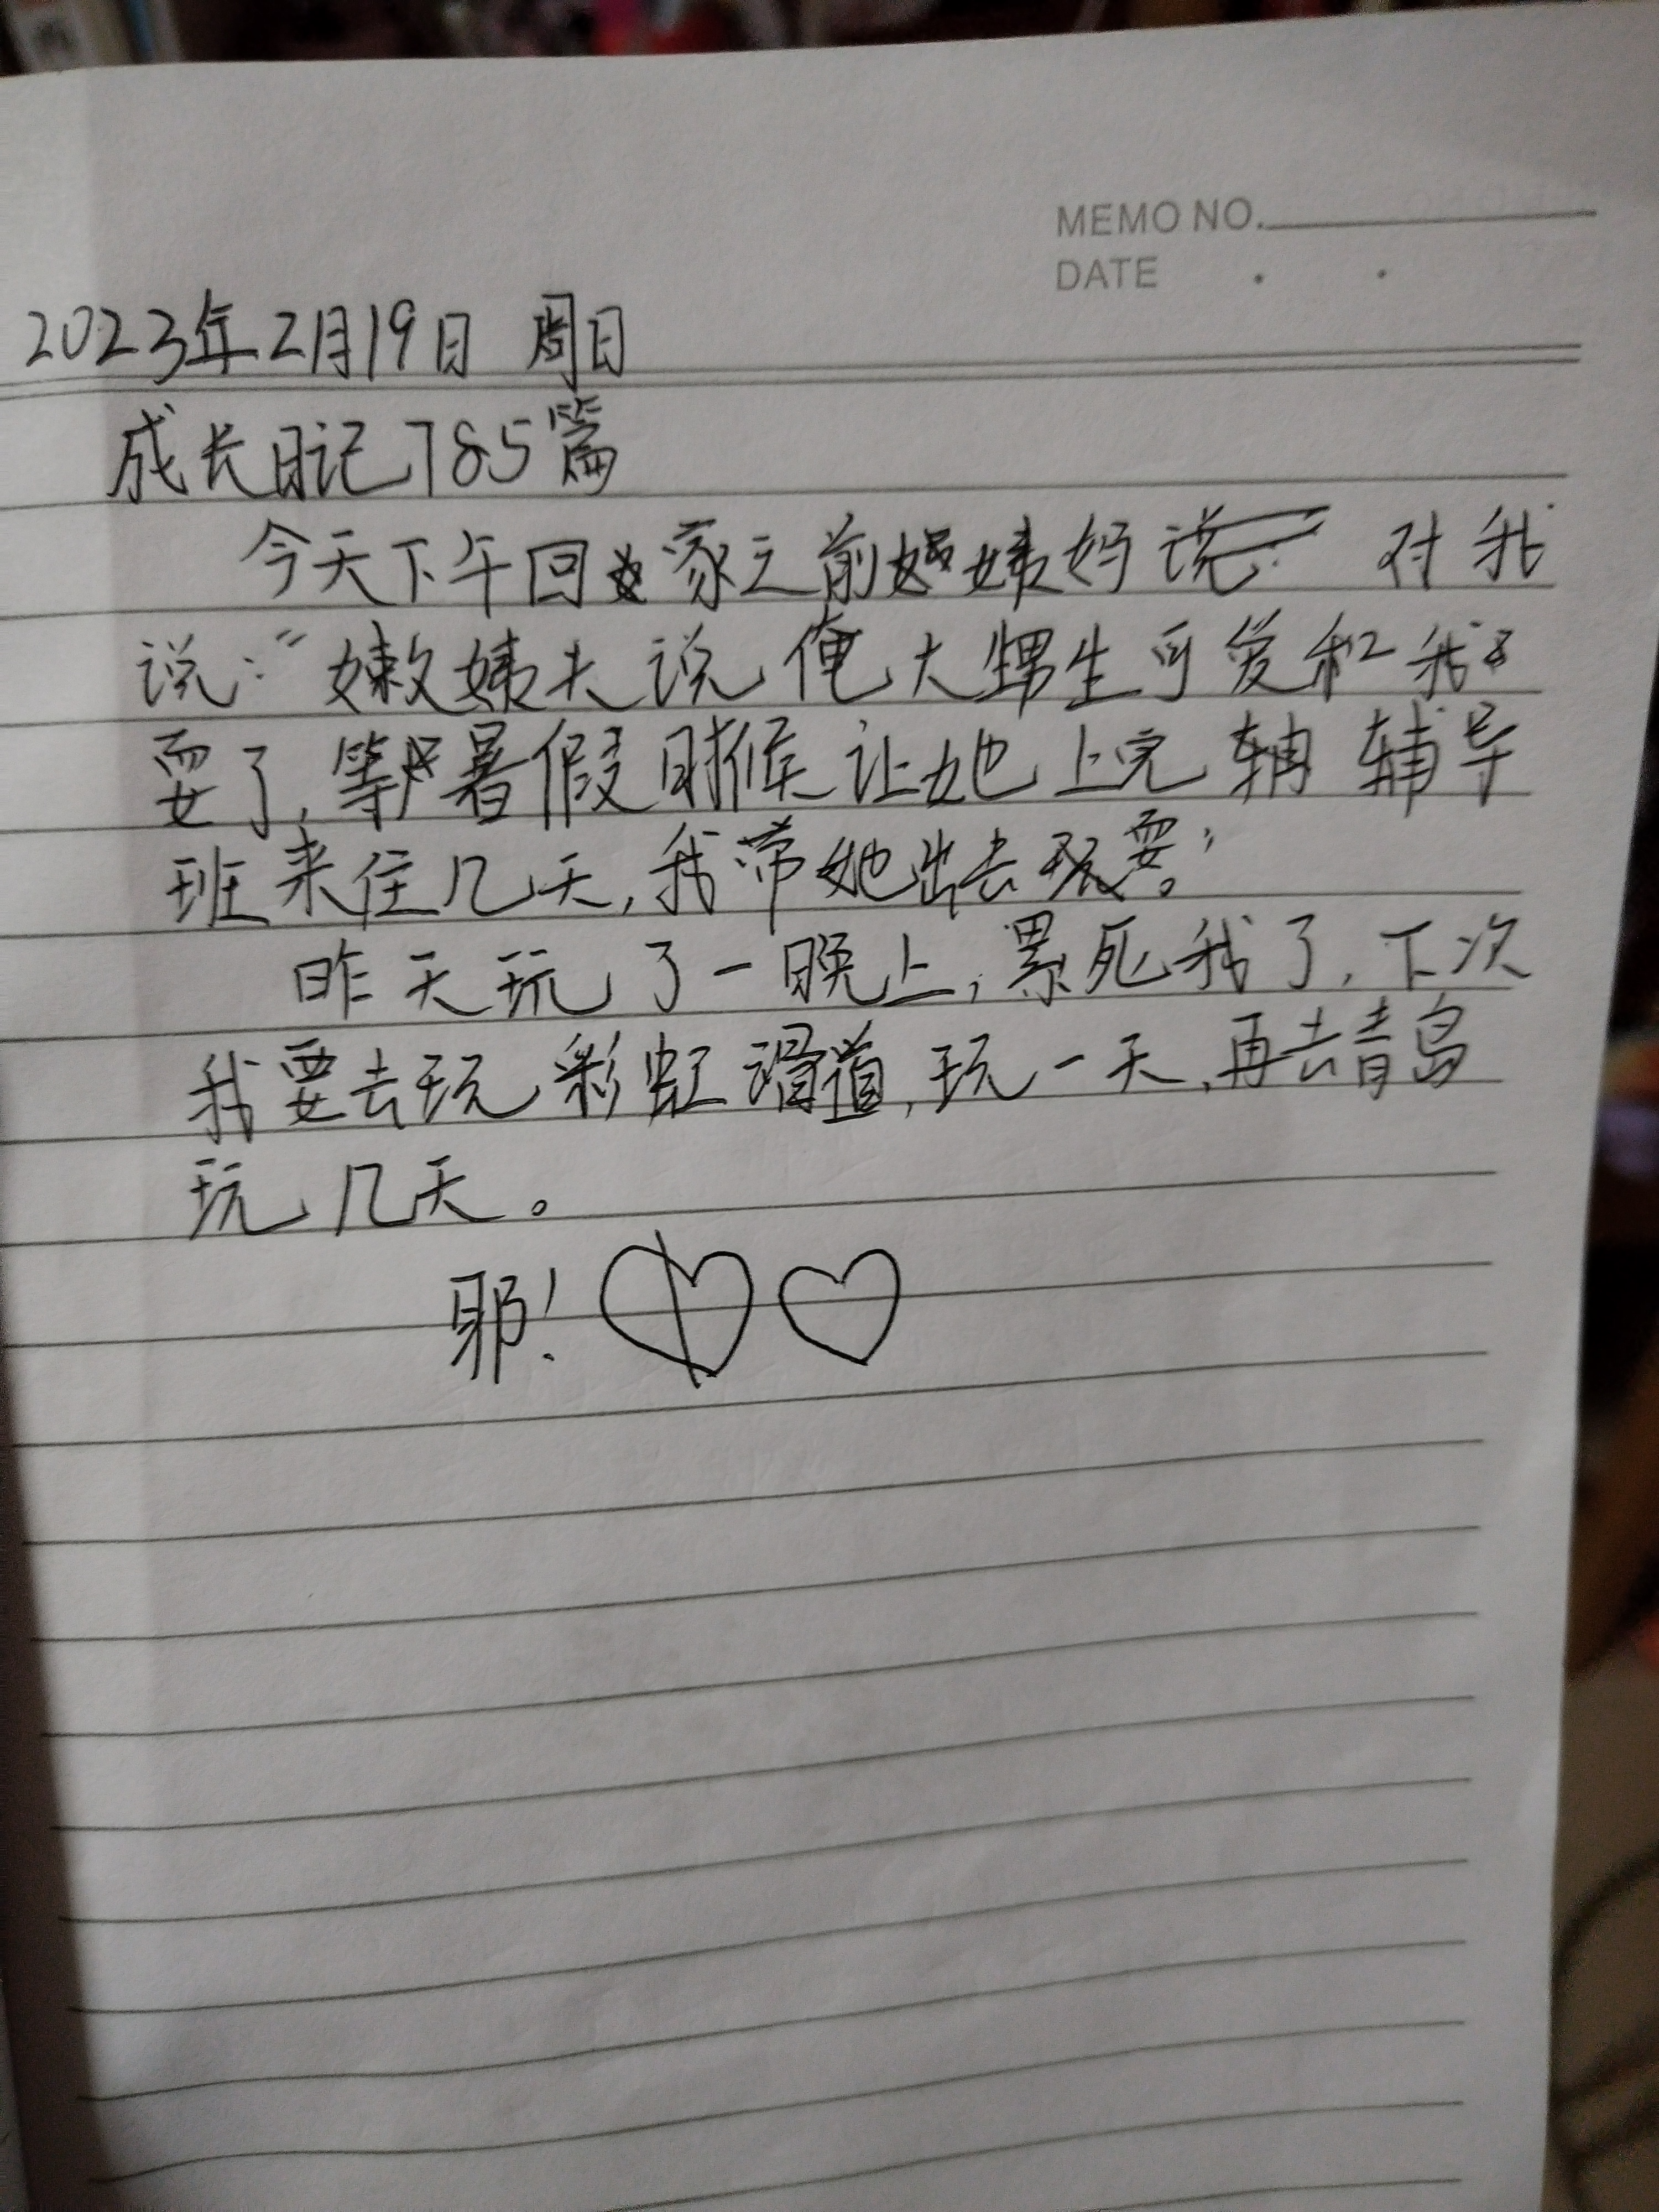 MEMO NO.
DATE . .
2023年2月19日 周日
成长日记785篇
今天下午回家之前姨妈说: 对我
说:“嫩姨夫说俺大甥生可爱和我
耍了,等暑假时候让她上完辅 辅导
班来住几天,我带她出去玩耍。”
昨天玩了一晚上,累死我了,下次
我要去玩彩虹滑道,玩一天,再去青岛
玩几天。
耶!